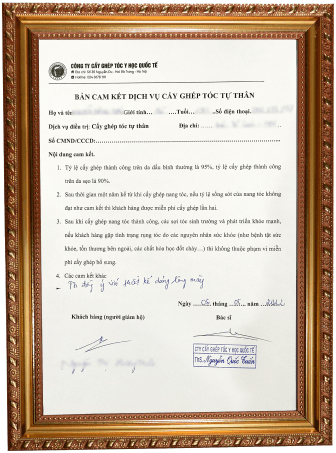 CÔNG TY CẤY GHÉP TÓC Y HỌC QUỐC TẾ
BẢN CAM KẾT DỊCH VỤ CẤY GHÉP TÓC TỰ THÂN
Họ và tên: Giới tính: Tuổi: Số điện thoại:
Dịch vụ điều trị: Cấy ghép tóc tự thân Địa chỉ:
Số CMND/CCCD:
Nội dung cam kết.
1. Tỷ lệ cấy ghép thành công trên da đầu bình thường là 95%, tỷ lệ cấy ghép thành công
trên da sẹo là 90%.
2. Sau thời gian một năm kể từ khi cấy ghép nang tóc, nếu tỷ lệ sống sót của nang tóc không
đạt như cam kết thì khách hàng được miễn phí cấy ghép lần hai.
3. Sau khi cấy ghép nang tóc thành công, các sợi tóc sinh trưởng và phát triển khỏe mạnh,
nếu khách hàng gặp tình trạng rụng tóc do các nguyên nhân sức khỏe (như bệnh tật sức
khỏe, tổn thương bên ngoài, các chất hóa học đốt cháy…) thì không thuộc phạm vi miễn
phí cấy ghép bổ sung.
4. Các cam kết khác:
- Tôi đồng ý với thiết kế dáng lông mày
Ngày 04 tháng 05 năm
Khách hàng (người giám hộ) Bác sĩ
CTY CẤY GHÉP TÓC Y HỌC QUỐC TẾ
THS. Nguyễn Quốc Tuấn